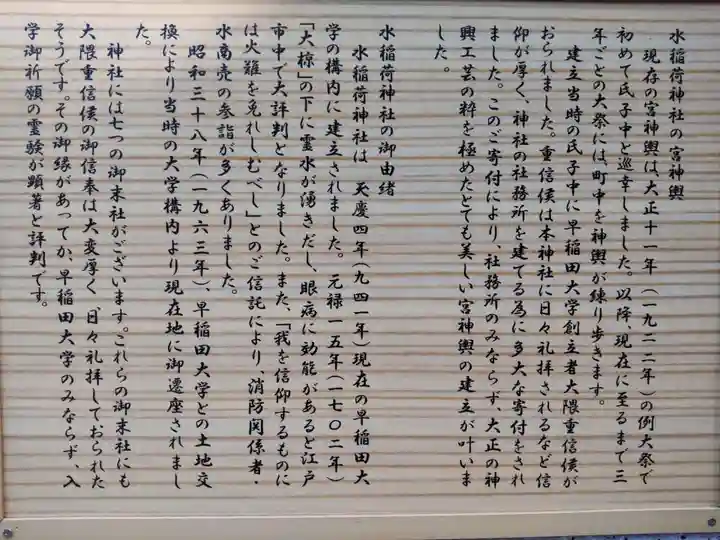 水稲荷神社の宮神輿
現存の宮神輿は、大正十一年(一九二二年)の例大祭で
初めて氏子中と巡幸しました。以降、現在に至るまで三
年ごとの大祭には、町中を神輿が練り歩きます。
建立当時の氏子中に早稲田大学創立者大隈重信侯が
おられました。重信侯は本神社に日々礼拝されるなど信
仰が厚く、神社の社務所を建てる為に多大な寄付をされ
ました。このご寄付により、社務所のみならず、大正の神
輿工芸の粋を極めたとても美しい宮神輿の建立が叶いま
した。
水稲荷神社の御由緒
水稲荷神社は、天慶四年(九四一年)現在の早稲田大
学の構内に建立されました。元禄一五年(一七〇二年)
「大椋」の下に霊水が湧きだし、眼病に効能があると江戸
市中で大評判となりました。また、「我を信仰するものに
は火難を免れしむべし」とのご信託により、消防関係者・
水商売の参詣が多くありました。
昭和三十八年(一九六三年)、早稲田大学との土地交
換により当時の大学構内より現在地に御遷座されまし
た。
神社には七つの御末社がございます。これらの御末社にも
大隈重信侯の御信奉は大変厚く、日々礼拝しておられた
そうです。その御縁があってか、早稲田大学のみならず、入
学御祈願の霊験が顕著と評判です。